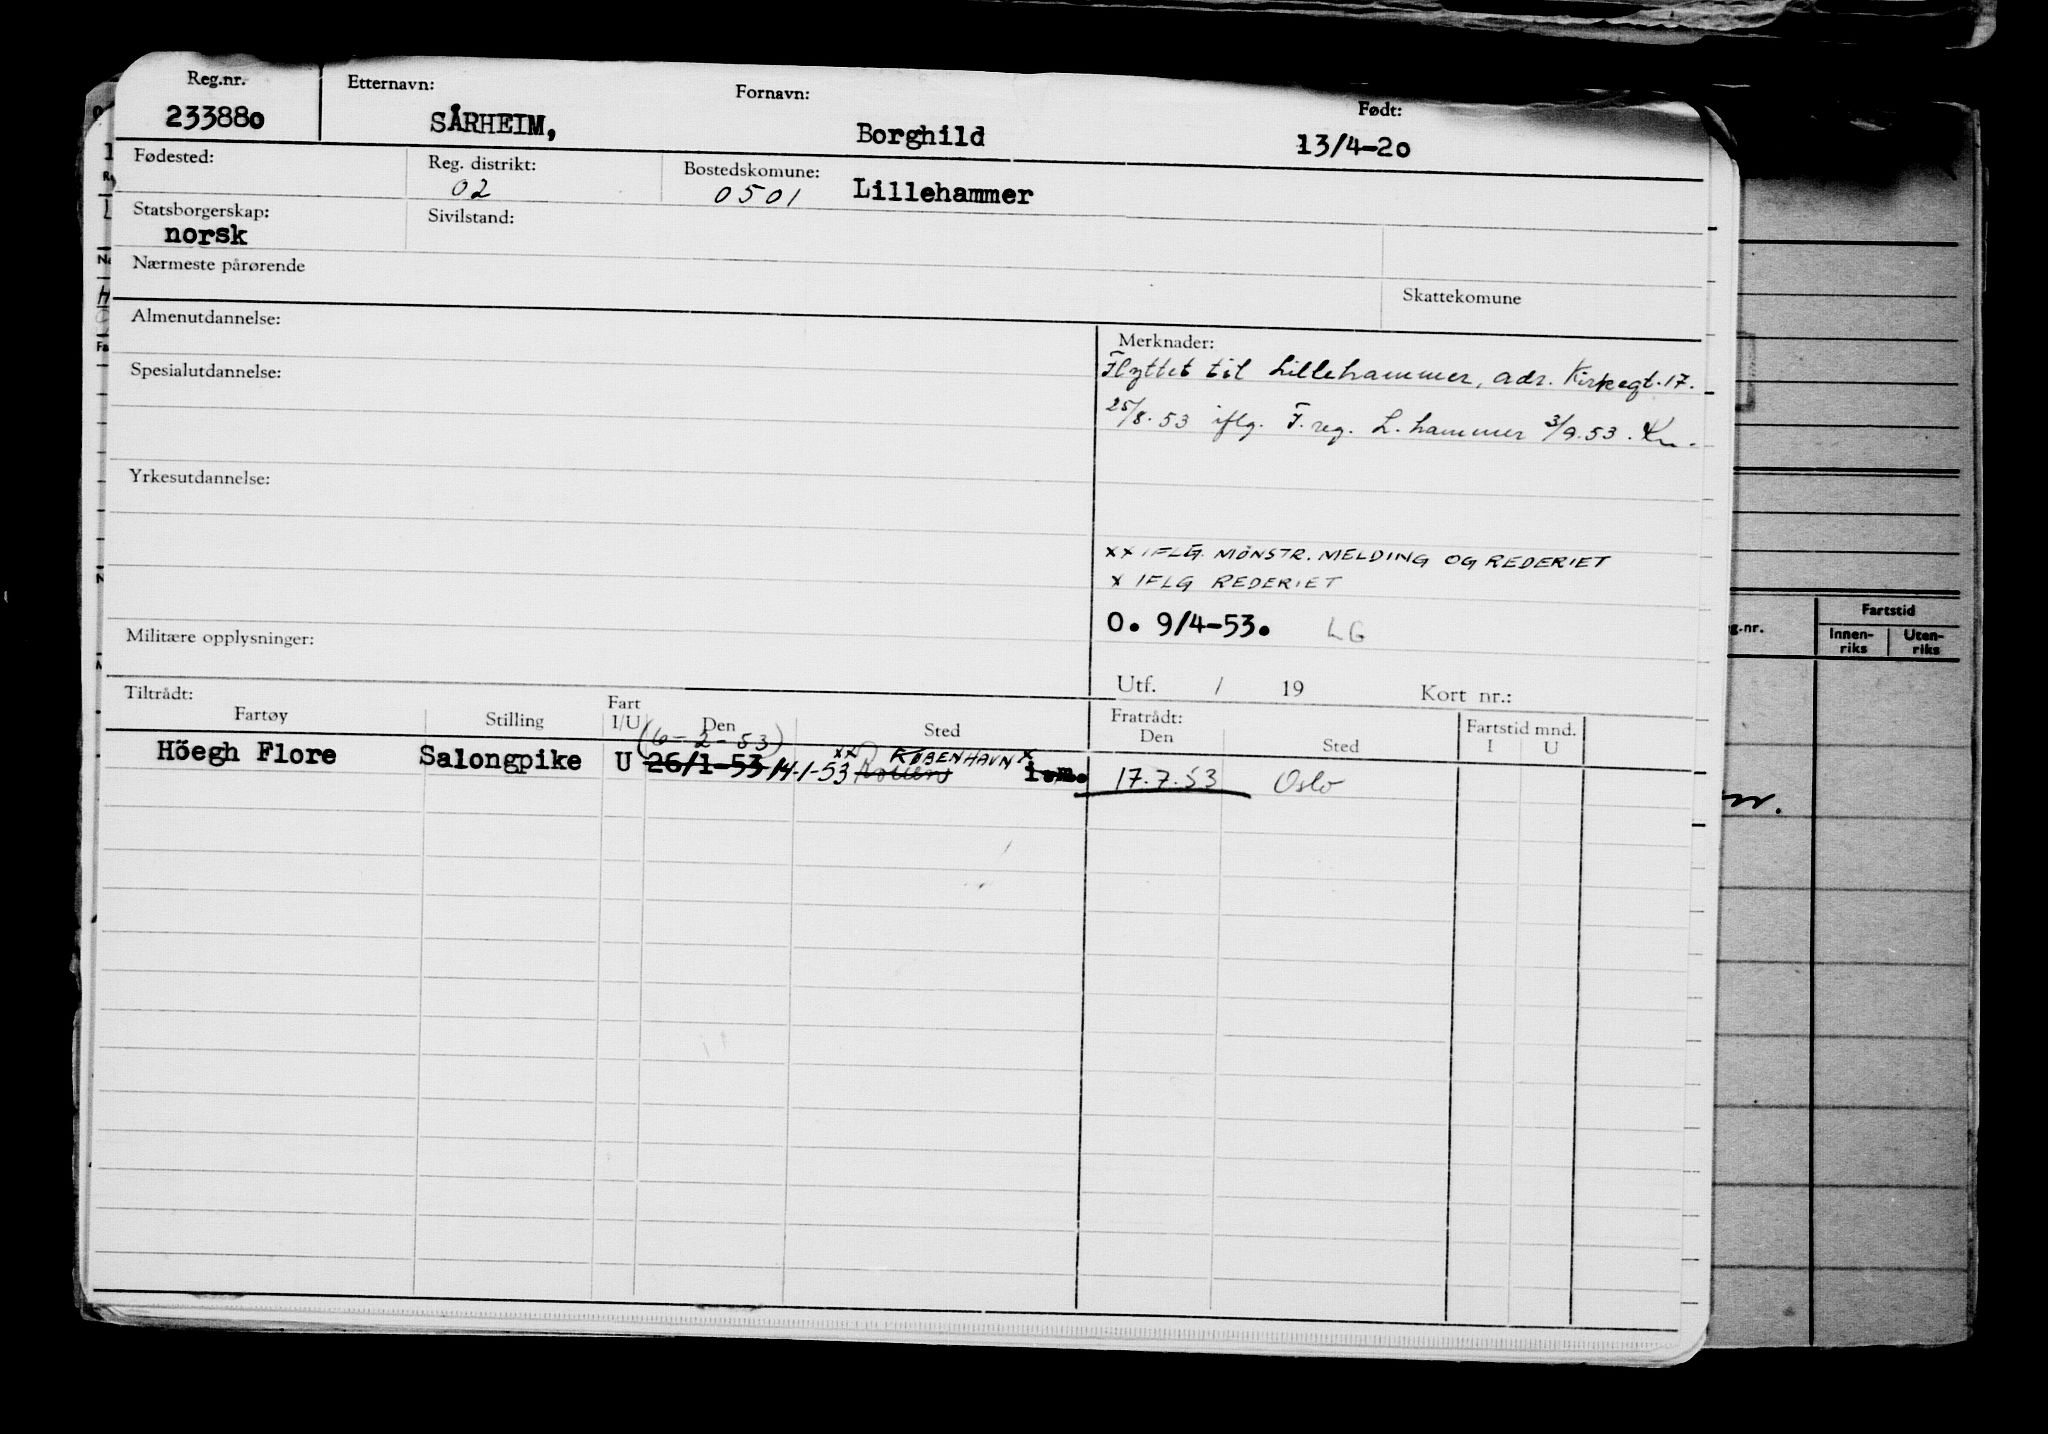 Reg.nr. Etternavn: Fornavn: Født:
233880 SÅRHEIM, Borghild 13/4-20
Fødested: Reg. distrikt: Bostedskomune:
02 0501 Lillehammer
Statsborgerskap: Sivilstand:
norsk
Nærmeste pårørende
Skattekomune
Almenutdannelse:
Merknader:
Flyttet til Lillehammer, adr. Kirkegt. 17.
Spesialutdannelse:
25/8.53 iflg. F.reg. L.hammer 3/9.53. Kn.
Yrkesutdannelse:
xx IFLG. MØNSTR. MELDING OG REDERIET
x IFLG REDERIET
O. 9/4-53. LG
Militære opplysninger:
Utf. / 19 Kort nr.:
Tiltrådt: Fratrådt:
Fartøy Stilling Fart I/U Den Sted Den Sted Fartstid mnd. I U
(6-2-53)
Höegh Flore Salongpike U 26/1-53 14-1-53 xx KØBENHAVN x i.m. 17.7.53 Oslo
g.nr. Fartstid
Innen-riks Uten-riks